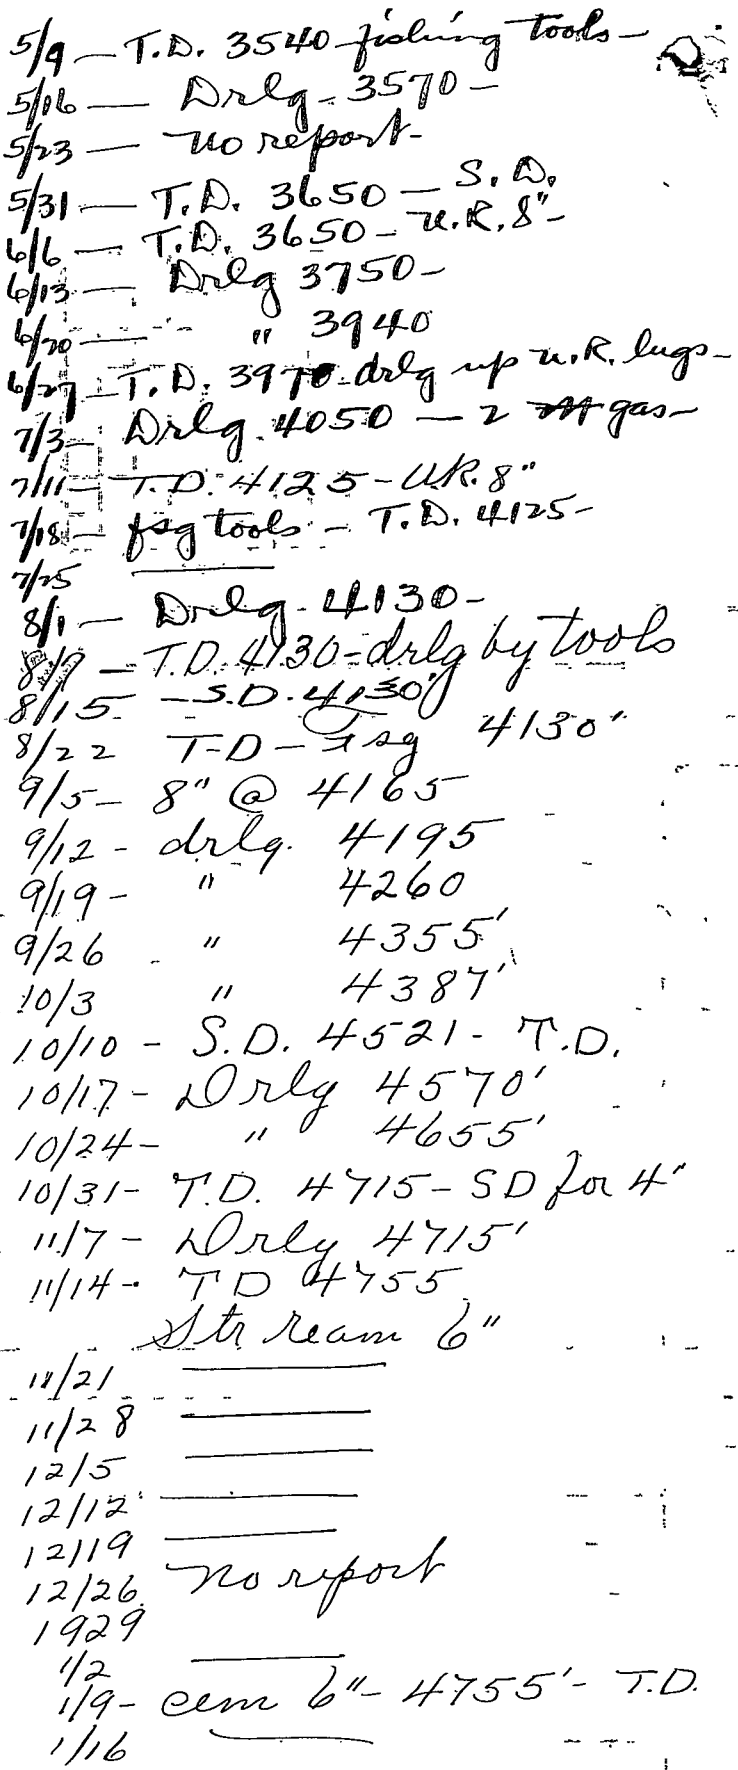 5/9 - T.D. 3540 fishing tools -
5/16 - Drlg - 3570 -
5/23 - No report -
5/31 - T.D. 3650 - S.D.
6/6 - T.D. 3650 - U.R. 8" -
6/13 - Drlg 3750 -
6/20 - " 3940
6/27 - T.D. 3970 - drlg up U.R. lugs -
7/3 - Drlg. 4050 - 2 M gas -
7/11 - T.D. 4125 - U.R. 8"
7/18 - fsg tools - T.D. 4125 -
7/25 ———
8/1 - Drlg - 4130 -
8/9 - T.D. 4130 - drlg by tools
8/15 - S.D. 4130'
8/22 T-D - Fsg 4130'
9/5 - 8" @ 4165
9/12 - drlg. 4195
9/19 - " 4260
9/26 " 4355'
10/3 " 4387'
10/10 - S.D. 4521 - T.D.
10/17 - Drlg 4570'
10/24 - " 4655'
10/31 - T.D. 4715 - SD for 4"
11/7 - Drlg 4715'
11/14 - TD 4755
Str ream 6"
11/21 ———
11/28 ———
12/5 ———
12/12 ———
12/19 ———
12/26 No report
1929
1/2 ———
1/9 - cem 6" - 4755' - T.D.
1/16 ———